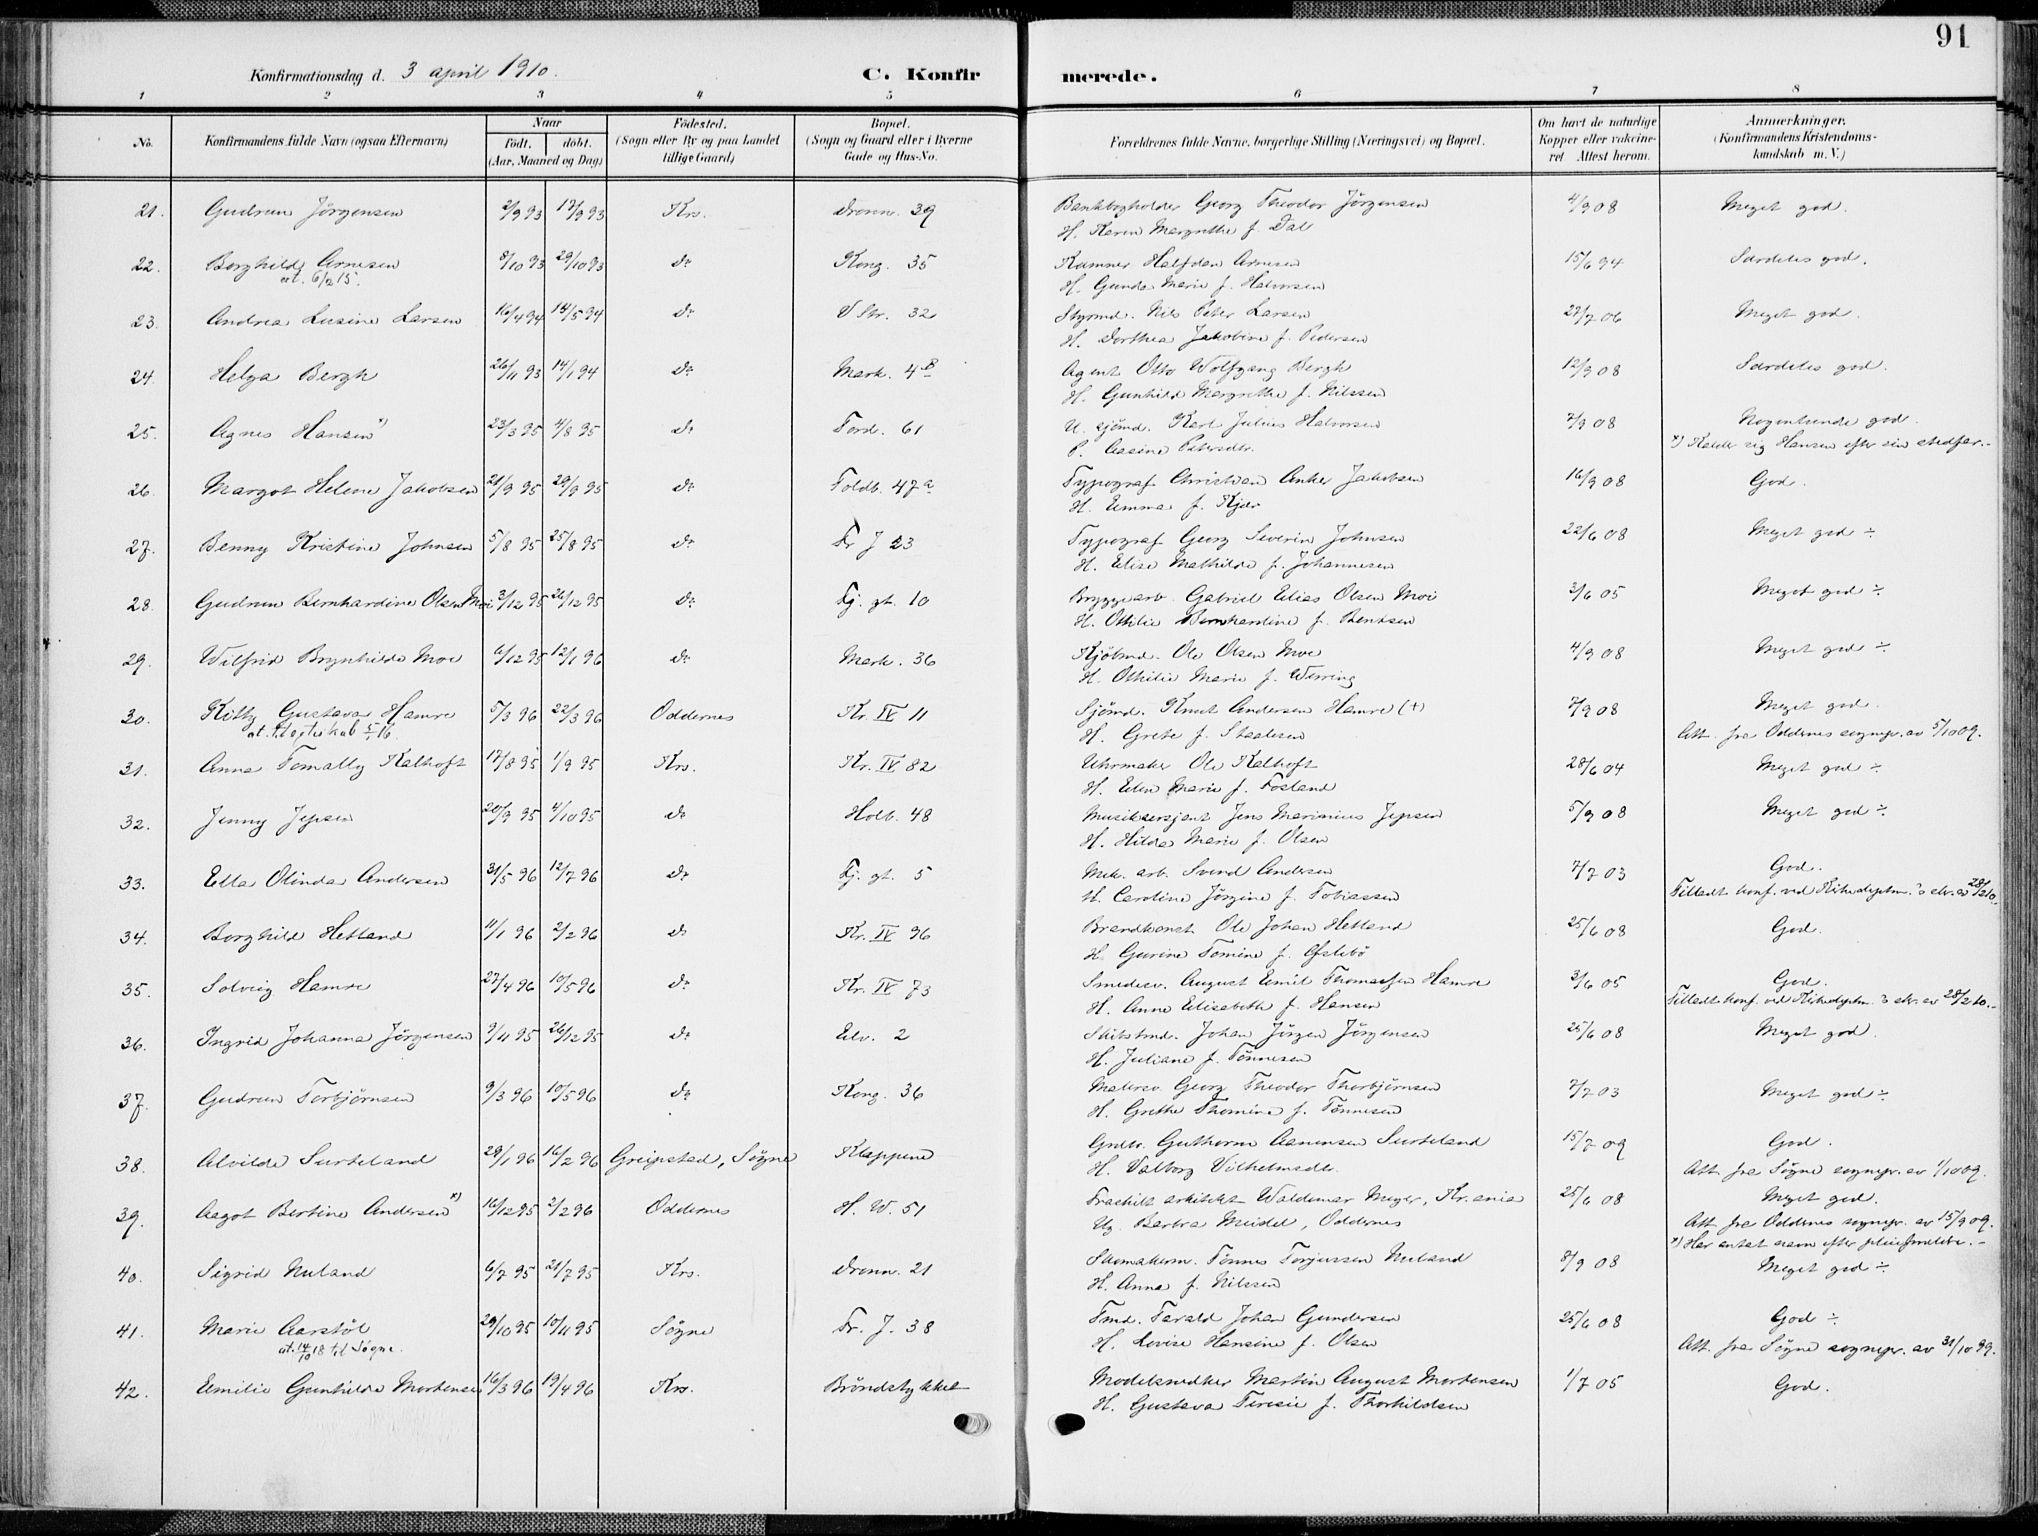 91
Konfirmationsdag d. 3 april 1910.
C. Konfirmerede.
1 2 3 4 5 6 7 8
No.
Konfirmandens fulde Navn (ogsaa Efternavn)
Naar
født. døbt.
(Aar, Maaned og Dag)
Fødested.
(Sogn eller By og paa Landet
tillige Gaard)
Bopæl.
(Sogn og Gaard eller i Byerne
Gade og Hus-No.
Forældrenes fulde Navne, borgerlige Stilling (Næringsvei) og Bopæl.
Om havt de naturlige
Kopper eller vakcine-
ret. Attest herom.
Anmærkninger.
(Konfirmandens Kristendoms-
kundskab m. V.)
21. Gudrun Jörgensen 2/9 93 17/9 93 Krs. Dronn. 39 Bankbogholder Georg Theodor Jörgensen 4/9 08 Meget god.
H. Karen Margrethe f. Dal
22. Borghild Arnesen 8/10 93 29/10 93 do Kong. 35 Kæmner Halfdan Arnesen 15/6 94 Særdeles god.
at. 6/2 15.
H. Gunda Marie f. Halvorsen
23. Andrea Lusine Larsen 16/4 94 14/5 94 do V Str. 32 Styrmd. Nils Peter Larsen 27/7 06 Meget god.
H. Dorthea Jakobine f. Pedersen
24. Helga Bergh 26/11 93 14/1 94 do Mark. 4B Agent Otto Wolfgang Bergh 12/9 08 Særdeles god.
H. Gunhild Margrethe f. Nilssen
25. Agnes Hansen x) 23/3 95 4/8 95 do Tord. 61 U. sjömd. Karl Julius Halvorsen 7/9 08 Nogenlunde god.
P. Aasine Petersdtr. x) Kalder sig Hansen efter sin stedfar.-
26. Margot Helene Jakobsen 21/9 95 29/9 95 do Toldb. 47a Typograf Christian Anker Jakobsen 16/9 08 God.
H. Emma f. Kjær
27. Benny Kristine Johnsen 5/8 95 25/8 95 do Fr J 23 Typograf Georg Severin Johnsen 22/6 08 Meget god ÷
H. Elise Mathilde f. Johannesen
28. Gudrun Bernhardine Olsen Moi 3/12 95 26/12 95 do Fj. gt. 10 Bryggearb. Gabriel Elias Olsen Moi 3/6 05 Meget god ÷
H. Othilie Bernhardine f. Bentsen
29. Wilfrid Brynhilde Moe 6/12 95 12/1 96 do Mark. 36 Kjöbmd. Ole Olsen Moe 4/9 08 Meget god ÷
H. Othilie Marie f. Werring
30. Kitty Gustava Hamre 5/3 96 22/3 96 Oddernes Kr. IV 11 Sjömd. Knut Andersen Hamre (+) 7/9 08 Meget god.
H. Grete f. Staalesen Att. fra Oddernes sognepr. av 5/10 09.
31. Anna Tomally Kalhoft 17/8 95 1/9 95 Krs. Kr. IV 82 Uhrmaker Ole Kalhoft 28/6 04 Meget god ÷
H. Elen Marie f. Fosland
32. Jenny Jepsen 20/9 95 4/10 95 do Holb. 48 Musiksersjant Jens Marinius Jepsen 5/9 08 Meget god ÷
H. Hilda Marie f. Olsen
33. Ella Olinda Andersen 31/5 96 12/7 96 do Fj. gt. 5 Mek. arb. Svend Andersen 7/7 03 God.
H. Caroline Jörgine f. Tobiassen Tilladt konf. ved Kirkedeptm.s skr. av 28/2 10.
34. Borghild Hetland 11/1 96 2/2 96 do Kr. IV 96 Brandkonst. Ole Johan Hetland 25/6 08 God.
H. Gurine Tomine f. Öslebö
35. Solveig Hamre 27/4 96 10/5 96 do Kr. IV 73 Smedesv. August Emil Thomassen Hamre 3/6 05 God.
H. Anne Elisabeth f. Hansen Tilladt konf. ved Kirkedeptm.s skr. av 28/2 10.-
36. Ingrid Johanna Jörgensen 9/11 95 26/12 95 do Elv. 2 Skibstmd. Johan Jörgen Jörgensen 25/6 08 Meget god.
H. Juliane f. Tönnesen
37. Gudrun Torbjörnsen 9/3 96 10/5 96 do Kong. 36 Malersv. Georg Theodor Thorbjörnsen 7/7 03 Meget god ÷
H. Grethe Thomine f. Tönnesen
38. Alvilde Surteland 28/1 96 16/2 96 Greipstad, Sögne Kleppene Grdbr. Guthorm Aanensen Surteland 15/7 09 God.
H. Valborg Vilhelmsdtr. Att. fra Sögne sognepr. av 1/10 09.
39. Aagot Bertine Andersen x) 16/12 95 2/2 96 Oddernes H. W. 51 Fraskilt arkitekt Waldemar Meyer, Kr.ania 25/6 08 Meget god.
Ug. Barbra Meidel, Oddernes Att. fra Oddernes sognepr. av 15/9 09.
x) Har antat navn efter pleieforældre.-
40. Sigrid Nuland 6/7 95 21/7 95 Krs. Dronn. 21 Skomakerm. Tönnes Torjussen Nuland 8/9 08 Meget god ÷
H. Anna f. Nilssen
41. Marie Aarstöl 29/10 95 10/11 95 Sögne Fr. J. 38 Tmd. Tarald Johan Gundersen 25/6 08 God ÷
at. 14/10 18 til Søgne.
H. Lovise Hansine f. Olsen Att. fra Sögne sognepr. av 31/10 99.
42. Emilie Gunhilda Mortensen 16/3 96 19/4 96 Krs. Bröndstykket Modelsnedker Martin August Mortensen 1/7 05 God.
H. Gustava Teresie f. Thorkildsen